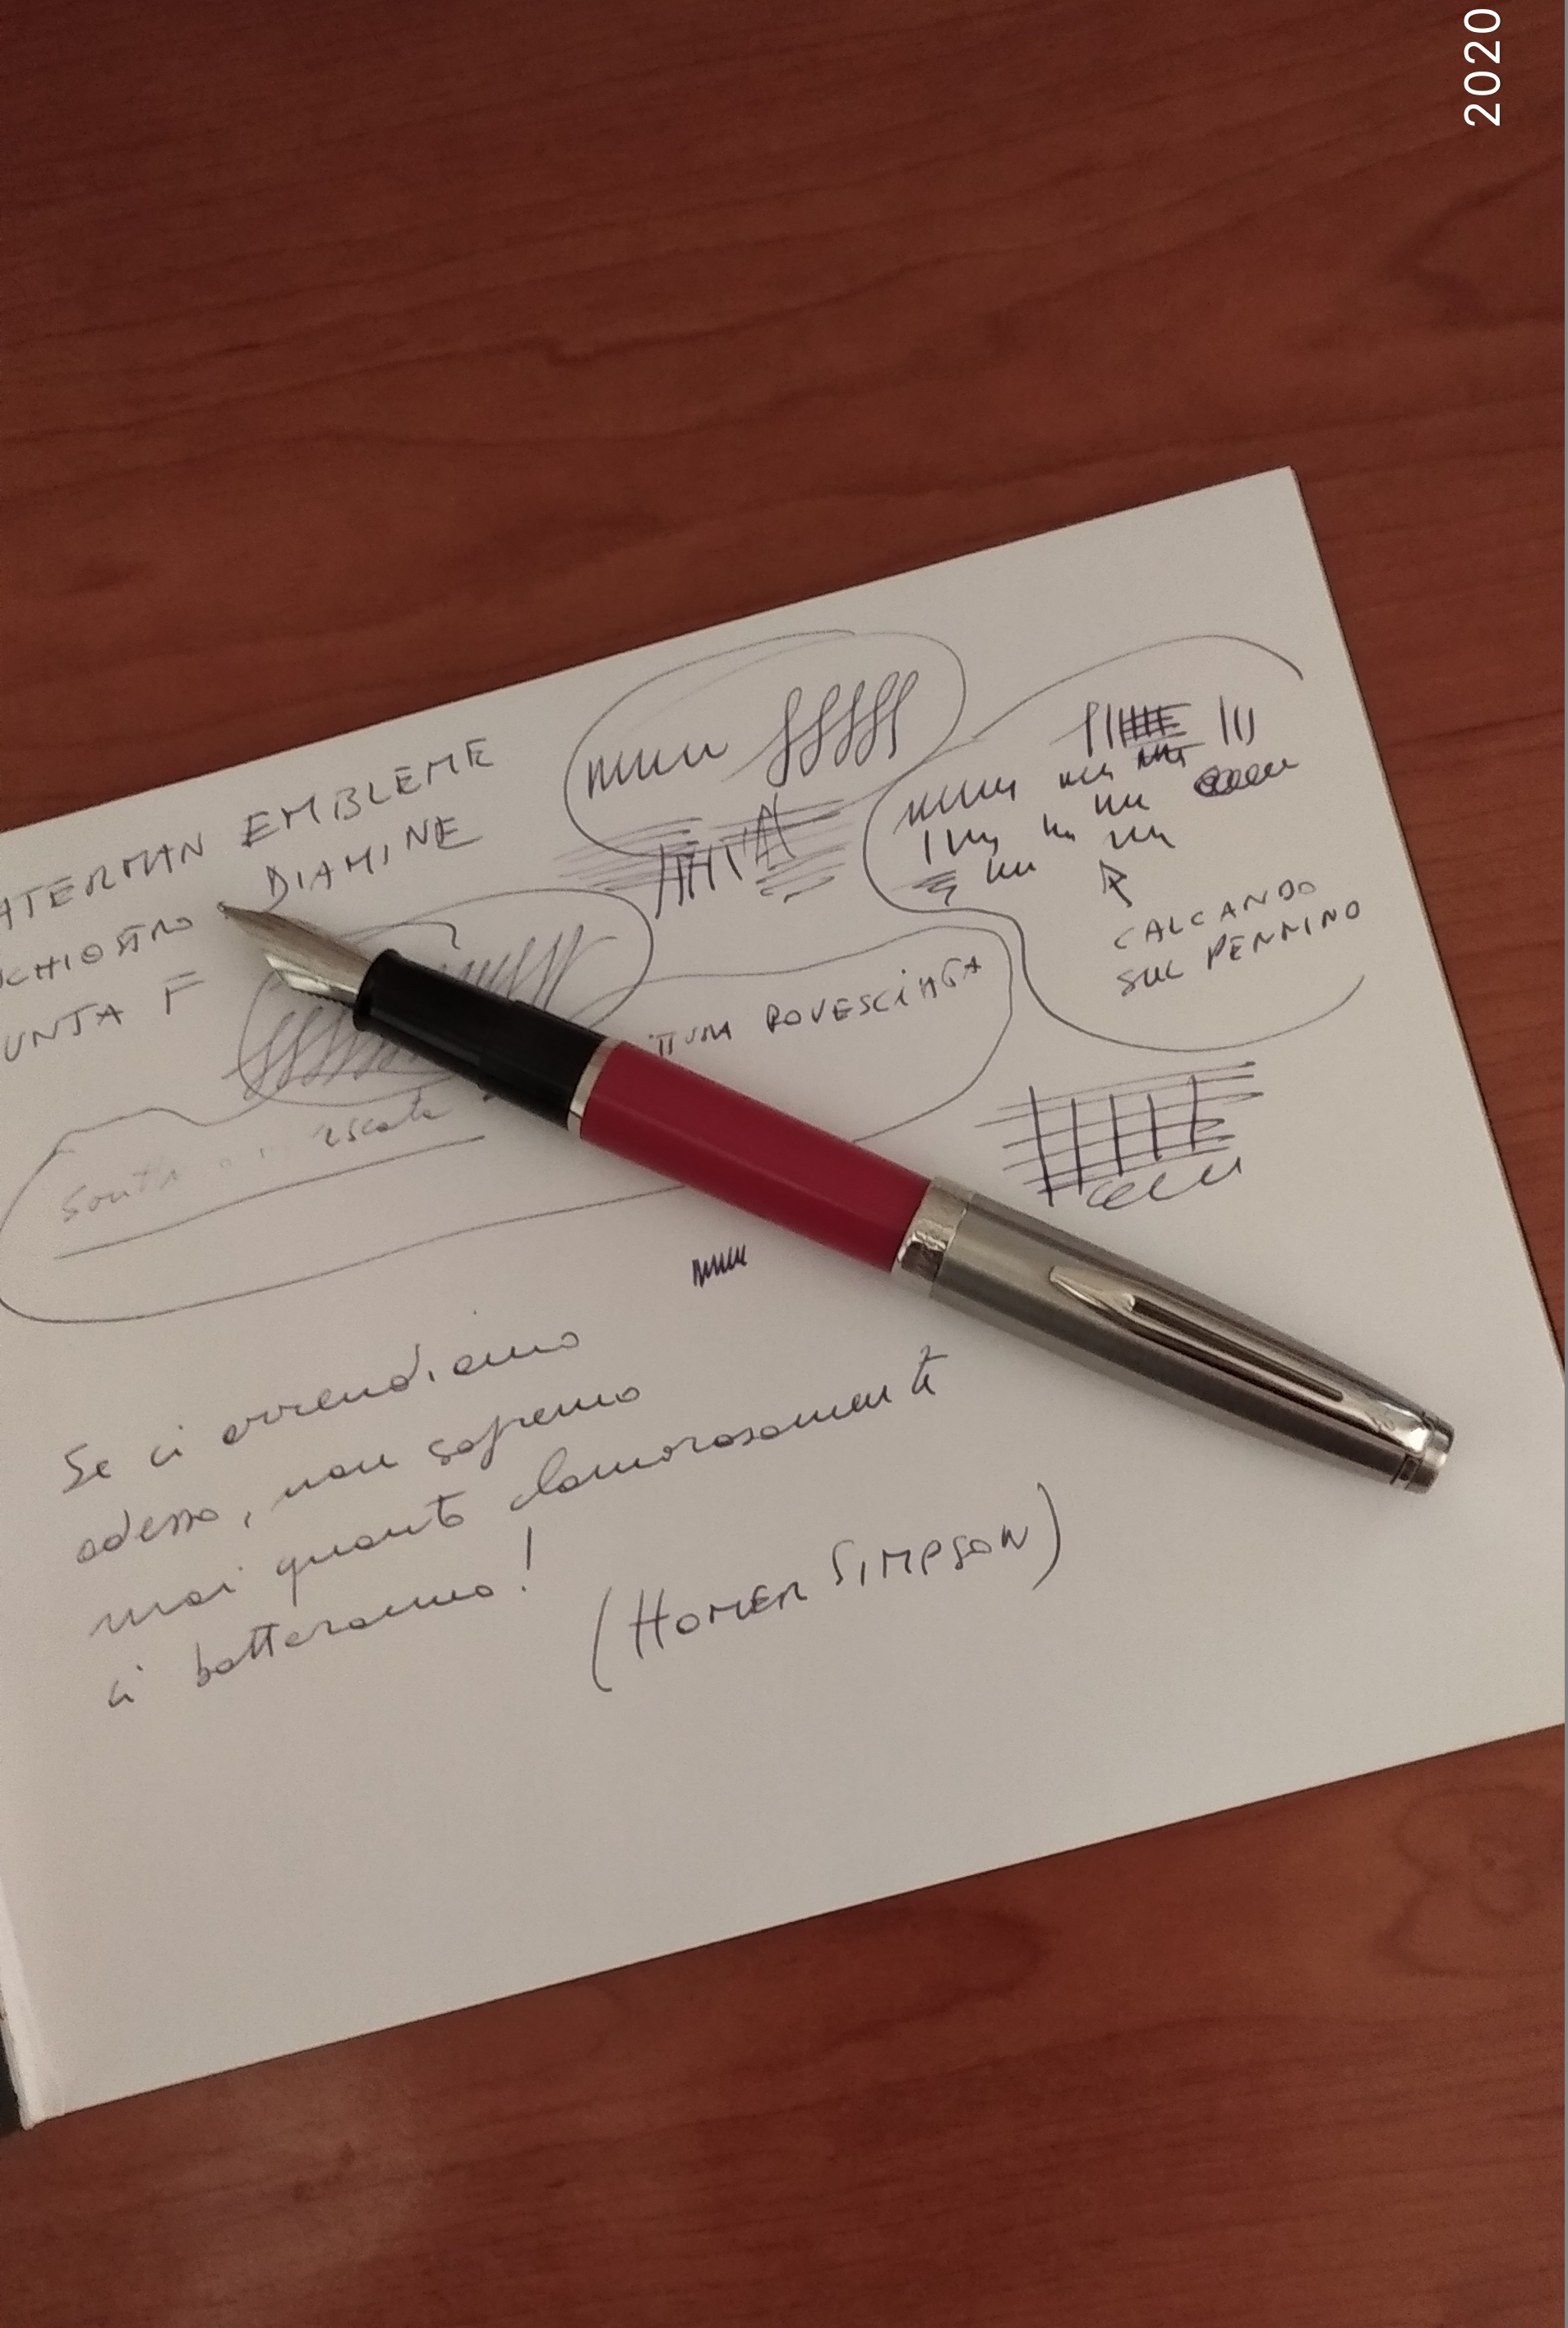 2020
ATERMAN EMBLEME
CHIOSTRO DIAMINE
UNTA F
CALCANDO
SUL PENNINO
ITTURA ROVESCIATA
Se ci arrendiamo
adesso, non sapremo
mai quanto clamorosamente
ci batteranno!
(HOMER SIMPSON)